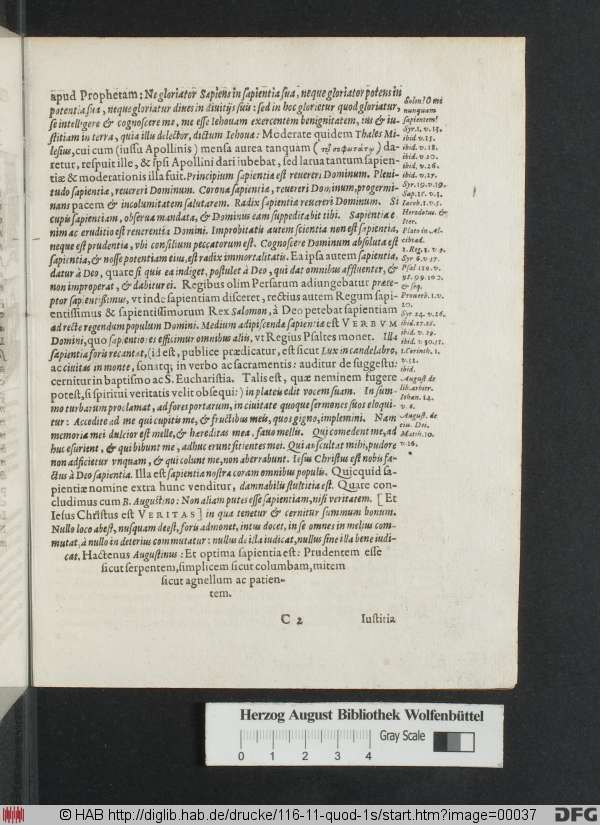 apud Prophetam: Ne gloriator Sapiens in sapientia sua, neque gloriator potens in
potentia sua, neque gloriatur dives in divitijs suis: sed in hoc glorietur quod gloriatur,
se intelligere & cognoscere me, me esse Iehovam exercentem benignitatem, ius & iu-
stitiam in terra, quia illis delector, dictum Iehova: Moderate quidem Thales Mi-
lesius, cui cum (iussu Apollinis) mensa aurea tanquam (τῷ σοφωτάτῳ) da-
retur, respuit ille, & ipsi Apollini dari iubebat, sed larua tantum sapien-
tiæ & moderationis illa fuit. Principium sapientia est revereri Dominum. Pleni-
tudo sapientia, revereri Dominum. Corona sapientia, revereri Dominum, progermi-
nans pacem & incolumitatem salutarem. Radix sapientia revereri Dominum. Si
cupis sapientiam, observa mandata, & Dominus eam suppeditabit tibi. Sapientia e-
nim ac eruditio est reverentia Domini. Improbitatis autem scientia non est sapientia,
neque est prudentia, vbi consilium peccatorum est. Cognoscere Dominum absoluta est
sapientia, & nosse potentiam eius, est radix immortalitatis. Ea ipsa autem sapientia,
datur à Deo, quare si quis ea indiget, postulet à Deo, qui dat omnibus affluenter, &
non improperat, & dabitur ei. Regibus olim Persarum adiungebatur præce-
ptor sapientissimus, vt inde sapientiam disceret, rectius autem Regum sapi-
entissimus & sapientissimorum Rex Salomon, à Deo petebat sapientiam
ad recte regendum populum Domini. Medium adipiscendæ sapientiæ est VERBVM
Domini, quo sapientiores efficimur omnibus aliis, vt Regius Psaltes monet. Illa
sapientia foris recantat, (id est, publice prædicatur, est sicut Lux in candelabro,
ac civitas in monte, sonatq; in verbo ac sacramentis: auditur de suggestu:
cernitur in baptismo ac S. Eucharistia. Talis est, quæ neminem fugere
potest, si spiritui veritatis velit obsequi:) in plateis edit vocem suam. In sum-
mo turbarum proclamat, ad fores portarum, in civitate quoque sermones suos eloqui-
tur: Accedite ad me qui cupitis me, & fructibus meis, quos gigno, implemini. Nam
memoria mei dulcior est melle, & hereditas mea, favo mellis. Qui comedent me, ad
huc esurient, & qui bibunt me, adhuc erunt sitientes mei. Qui auscultat mihi, pudore
non adficietur vnquam, & qui colunt me, non aberrabunt. Iesus Christus est nobis fa-
ctus à Deo sapientia. Illa est sapientia nostra coram omnibus populis. Quicquid sa-
pientiæ nomine extra hunc venditur, damnabilis stultitia est. Quare con-
cludimus cum B. Augustino: Non aliam putes esse sapientiam, nisi veritatem. [Et
Iesus Christus est VERITAS] in qua tenetur & cernitur summum bonum.
Nullo loco abest, nusquam deest, foris admonet, intus docet, in se omnes in melius com-
mutat, à nullo in deterius commutatur: nullus de illa iudicat, nullus sine illa bene iudi-
cat. Hactenus Augustinus: Et optima sapientia est: Prudentem esse
sicut serpentem, simplicem sicut columbam, mitem
sicut agnellum ac patien-
tem.
C 2 Iustitia
Solon! O mi
nunquam
sapientem!
Syr.1.v.15.
ibid v.15.
ibid. v.18.
ibid. v.20.
ibid. v.26.
ibid. v.17.
Syr.19.v.19.
Sap.15.v.3.
Iacob.1.v.5.
Herodotus. &
Plato in Al-
cibiad.
1.Reg.3.v.9.
Syr 6.v.37.
Psal 119.v.
98.99.100.
& seq.
Proverb.1.v.
20.
Syr 24.v.26.
ibid.27.28.
ibid. v.29.
ibid. v.30.31.
1.Corinth.1.
ibid.
August.de
lib.arbitr.
Iohan.14.
v.6.
August. de
civ. Dei.
Matth.10.
v.16.
Herzog August Bibliothek Wolfenbüttel
Gray Scale
0 1 2 3 4
© HAB http://diglib.hab.de/drucke/116-11-quod-1s/start.htm?image=00037
DFG